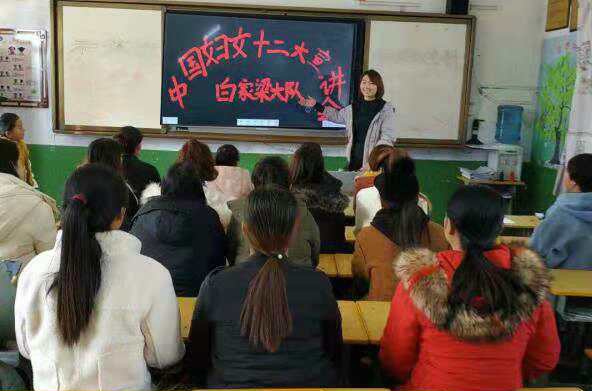 中国妇女十二大宣讲会
白家梁大队